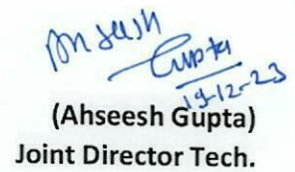 Ahseesh
Gupta
19-12-23
(Ahseesh Gupta)
Joint Director Tech.